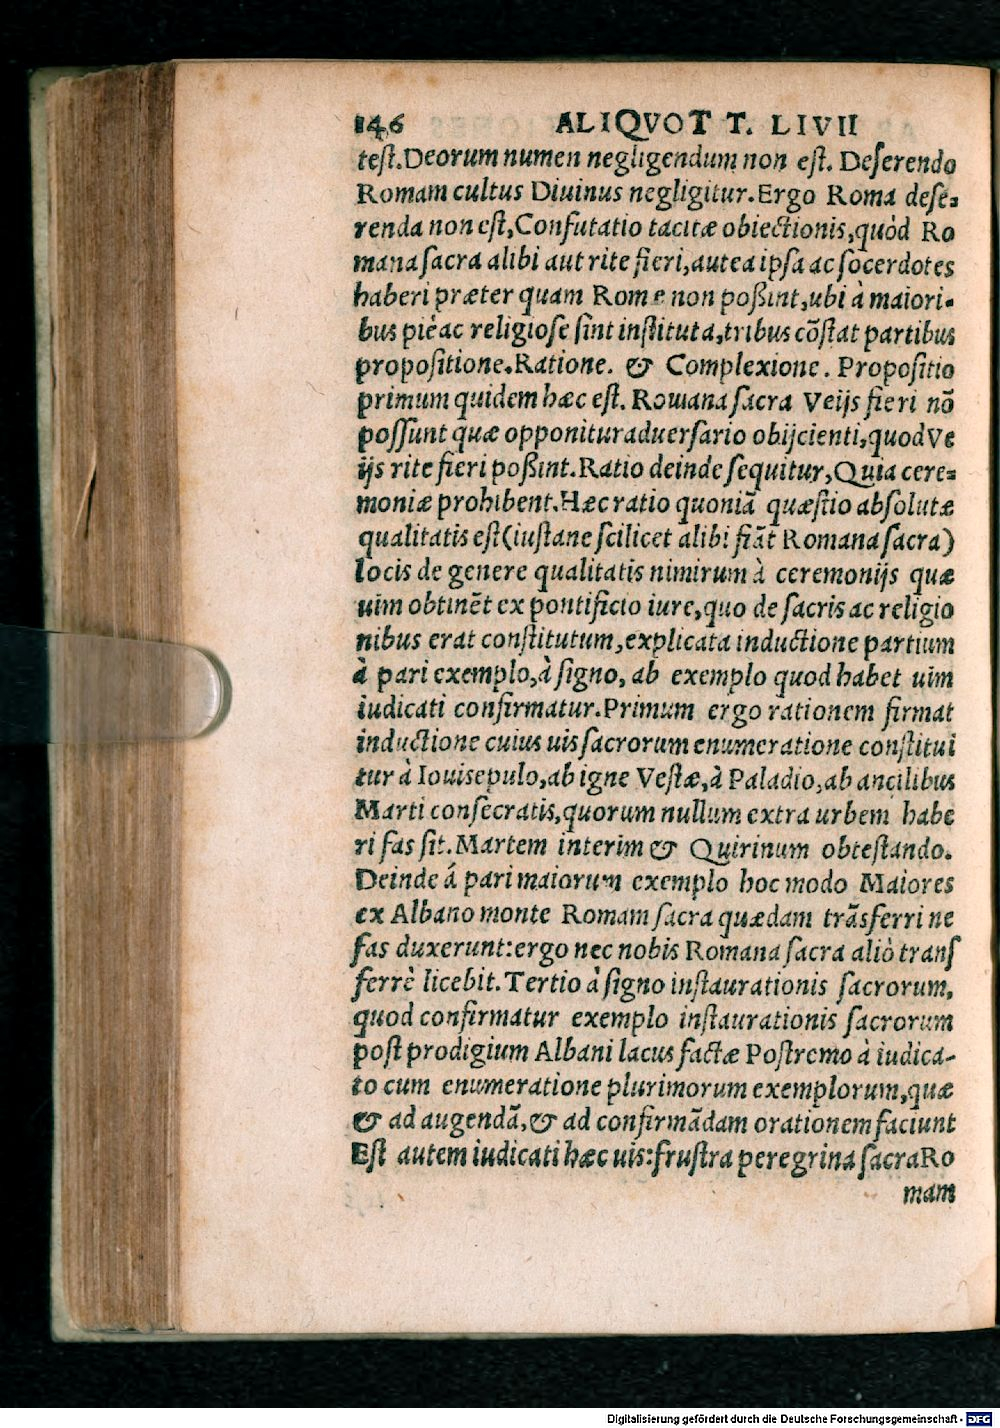 146 ALIQVOT T. LIVII
test. Deorum numen negligendum non est. Deserendo
Romam cultus Diuinus negligitur. Ergo Roma dese⸗
renda non est, Confutatio tacitæ obiectionis, quòd Ro
mana sacra alibi aut rite fieri, aut ea ipsa ac socerdotes
haberi præter quam Rome non poßint, ubi à maiori⸗
bus piè ac religiose sint instituta, tribus cõstat partibus
propositione. Ratione. & Complexione. Propositio
primum quidem hæc est. Romana sacra Veijs fieri nõ
possunt quæ opponitur aduersario obijcienti, quod Ve
ijs rite fieri poßint. Ratio deinde sequitur, Quia cere⸗
moniæ prohibent. Hæc ratio quoniã quæstio absolutæ
qualitatis est (iustane scilicet alibi fiãt Romana sacra)
locis de genere qualitatis nimirum à ceremonijs quæ
uim obtinẽt ex pontificio iure, quo de sacris ac religio
nibus erat constitutum, explicata inductione partium
à pari exemplo, à signo, ab exemplo quod habet uim
iudicati confirmatur. Primum ergo rationem firmat
inductione cuius uis sacrorum enumeratione constitui
tur à Iouis epulo, ab igne Vestæ, à Paladio, ab ancilibus
Marti consecratis, quorum nullum extra urbem habe
ri fas sit. Martem interim & Quirinum obtestando.
Deinde á pari maiorum exemplo hoc modo Maiores
ex Albano monte Romam sacra quædam trãsferri ne
fas duxerunt: ergo nec nobis Romana sacra aliò trans
ferrè licebit. Tertio à signo instaurationis sacrorum,
quod confirmatur exemplo instaurationis sacrorum
post prodigium Albani lacus factæ Postremo à iudica-
to cum enumeratione plurimorum exemplorum, quæ
& ad augendã, & ad confirmãdam orationem faciunt
Est autem iudicati hæc uis: frustra peregrina sacra Ro
mam
Digitalisierung gefördert durch die Deutsche Forschungsgemeinschaft - DFG